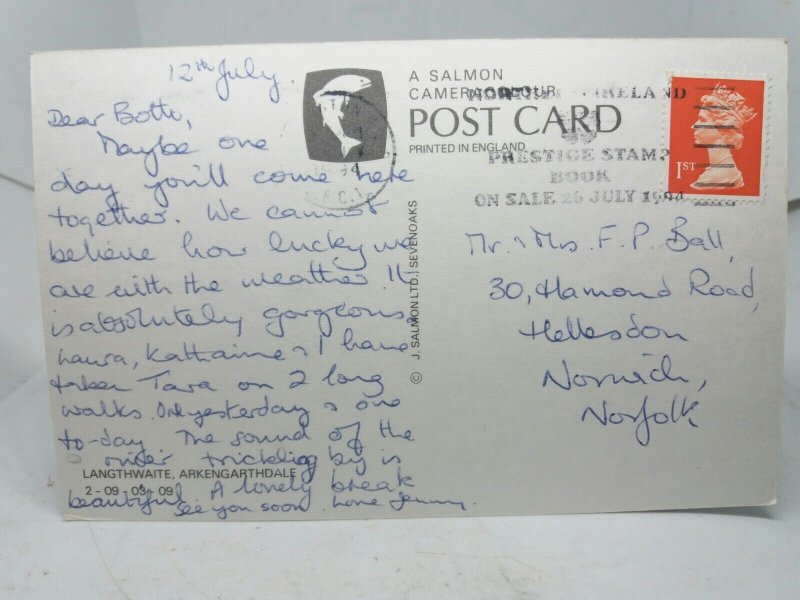 12th July.
Dear Both,
Maybe one
day you'll come here
together. We cannot
believe how lucky we
are with the weather. It
is absolutely gorgeous.
Laura, Katharine & I have
taken Tara on 2 long
walks. One yesterday & one
to-day. The sound of the
river trickling by is
beautiful. A lovely break
See you soon love Jenny.
LANGTHWAITE, ARKENGARTHDALE
2-09-03-09
A SALMON
CAMERACOLOUR
POST CARD
PRINTED IN ENGLAND
© J. SALMON LTD., SEVENOAKS
94
IRELAND
PRESTIGE STAMP
BOOK
ON SALE 26 JULY 1994
1ST
Mr. & Mrs. F. P. Ball,
30, Hamond Road,
Hellesdon
Norwich,
Norfolk